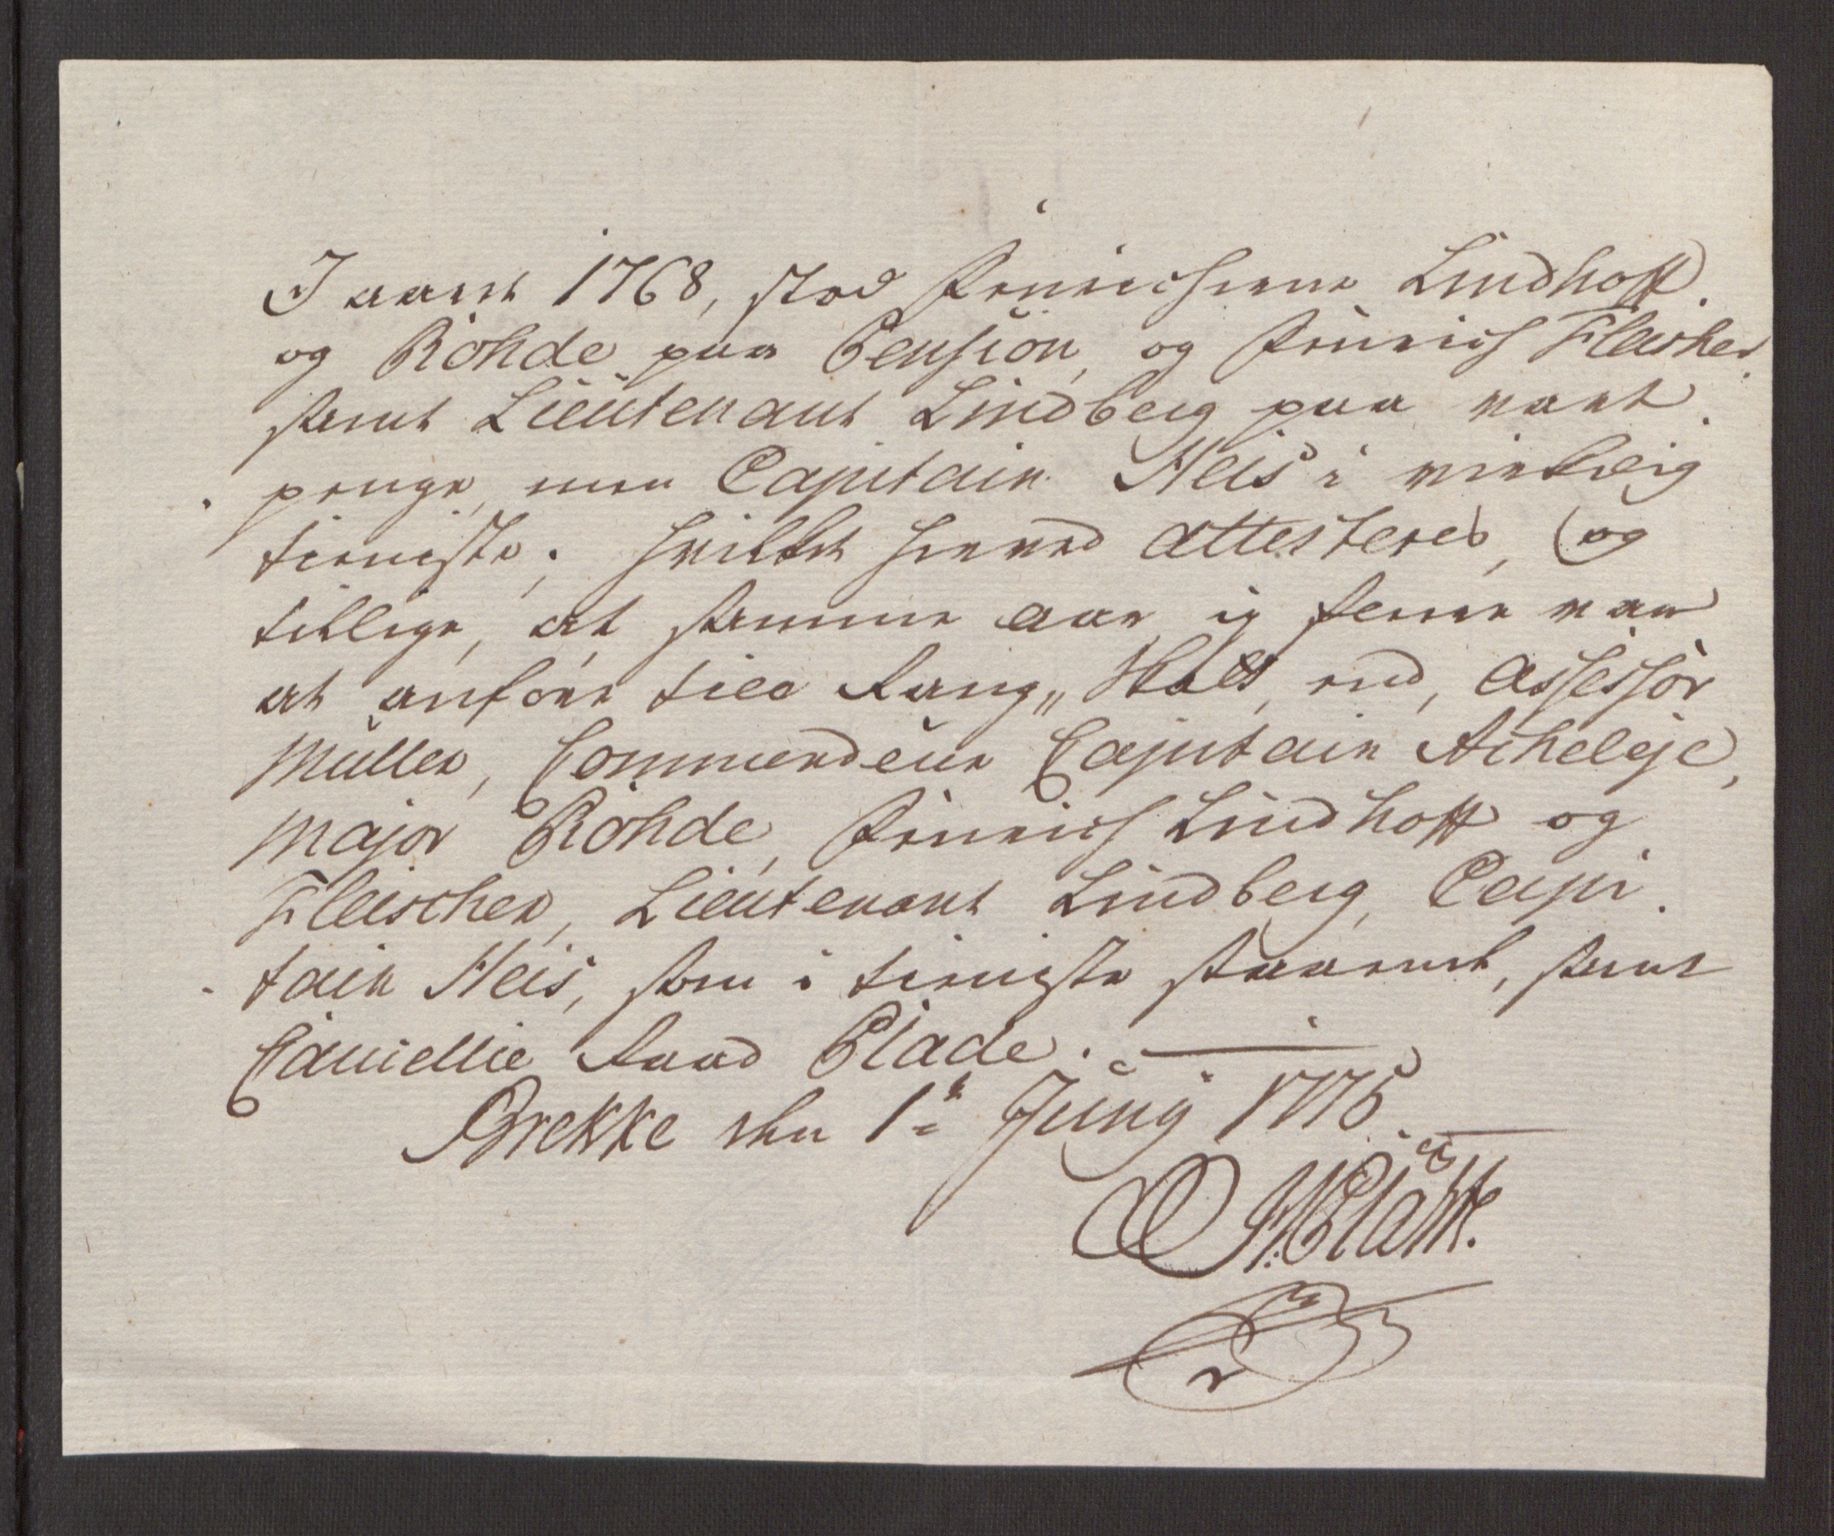 I aaret 1768, stod Fenrichene Lindhoff
og Röhde paa Pension, og Fenrich Fleischer
samt Lieutenant Lindberg paa vart
penge, men Capitain Heis i virkelig
tieniste; hvilket herved attesteres, (og
tillige, at samme aar ej fleere var
at anføre till Rang Skatt, end, Assessor
Müller, Commendeur Capitain Acheleje,
Major Röhde, Fenrich Lindhoff og
Fleischer, Lieutenant Lindberg, Capi
tain Heis, som i tieniste staaende, samt
Cancellie Raad Blade.
Brekke den 1te Junÿ 1775